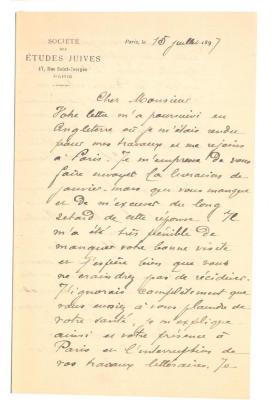 SOCIÉTÉ
DES
ÉTUDES JUIVES
17, Rue Saint-Georges
PARIS
Paris, le 15 juillet 1897
Cher Monsieur
Votre lettre m'a poursuivi en
Angleterre où je m'étais rendu
pour mes travaux et me rejoins
à Paris. Je m'empresse de vous
faire envoyer la livraison de
janvier-mars qui vous manque
et de m'excuser du long
retard de cette réponse. Il
m'a été très pénible de
manquer votre bonne visite
et j'espère bien que vous
ne craindrez pas de récidiver.
J'ignorais complètement que
vous eussiez à vous plaindre de
votre santé, je m'explique
ainsi et votre présence à
Paris et l'interruption de
vos travaux littéraires. Je